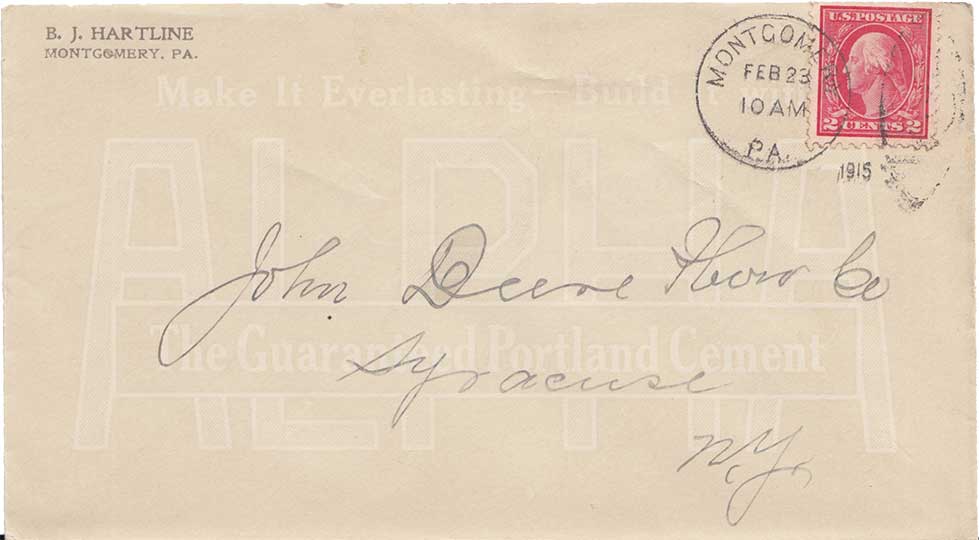 B. J. HARTLINE
MONTGOMERY, PA.
Make It Everlasting Build It with
ALPHA
The Guaranteed Portland Cement
MONTGOMERY
FEB 23
10 AM
PA.
1915
U.S. POSTAGE
2 CENTS 2
John Deere Plow Co
Syracuse
N.Y.